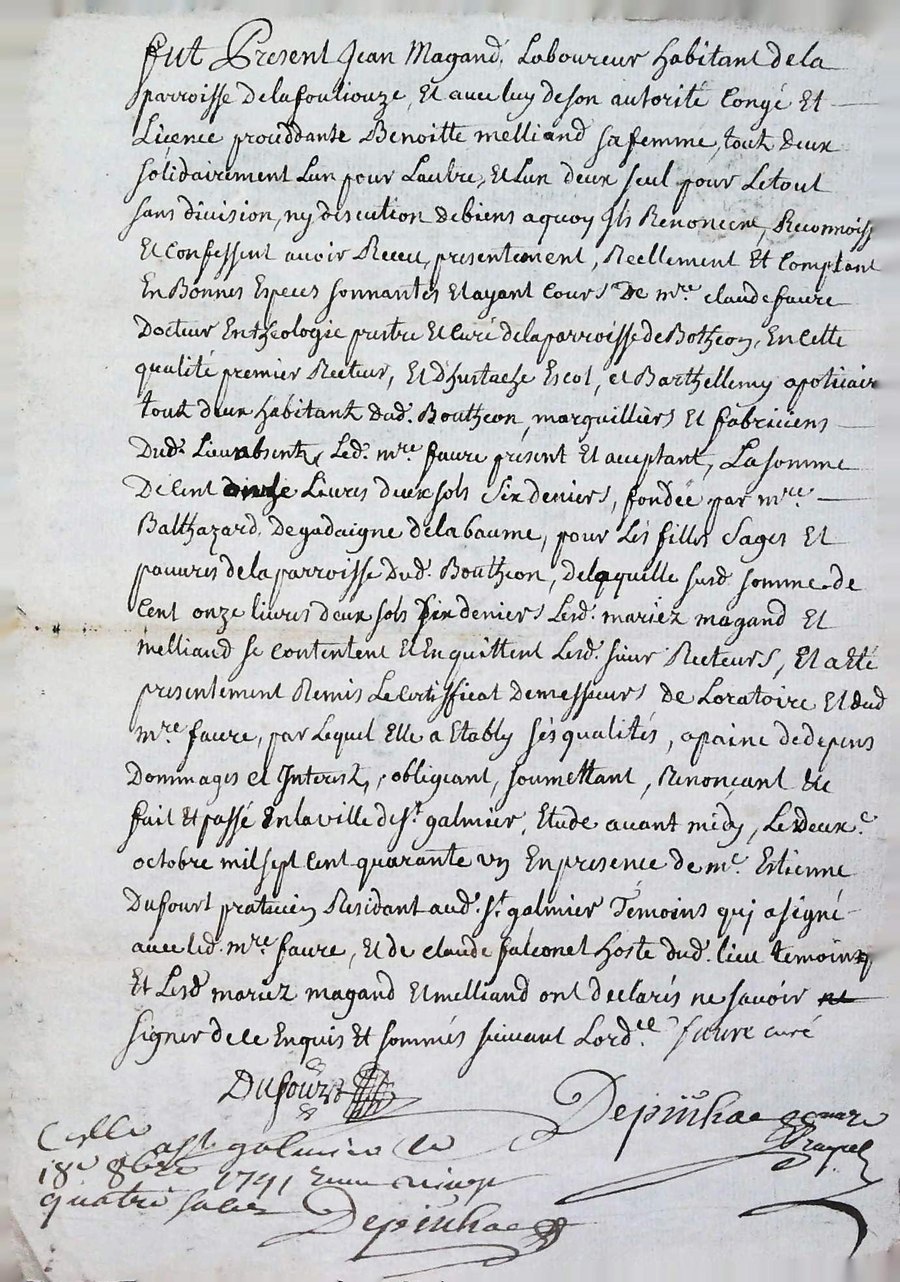 fut Present Jean Magand, Laboureur habitant de la
parroisse delafouliouze, Et avec luy deson autorité Congé Et
Licence proceddante Benoitte melliand sa femme, tout deux
solidairement Lun pour Lautre, et Lun deux seul pour Letout
sans division, ny discution debiens aquoy Ils Renoncent, Reconnoiss
Et Confessent avoir Receu, presentement, Reellement Et Comptant
En Bonnes Especes sonnantes Et ayant Cours De mre. claude faure
Docteur Entheologie prestre Et Curé delaparroisse de Botheon, En Cette
qualité premier Recteur, Et d'Eustache Escot, et Barthellemy apoticair
tout deux habitant dud. Bouthéon, marguilliers Et fabriciens
Dud. Lieu absentz, Led. mre faure present Et acceptant, La somme
De Cent onze Livres deux sols Six deniers, fondée par mre.
Balthazard, De gadaigne delabaume, pour Les filles Sages Et
pauvres delaparroisse Dud. Bouthéon, delaquelle susd. somme de
Cent onze livres deux sols Six deniers Lesd. mariez magand Et
melliand se Contentent Et En quittent Lesd. sieur Recteurs, Et a Eté
presentement Remis Le Certifficat Demessieurs de Loratoire Et dud
mre faure, par Lequel Elle a Etably ses qualités, apaine dedepens
Dommages et Interestz, obligeant, soumettant, Renonçant &c
fait Et passé En la ville de St. galmier, Etude avant midy, Le deuxe.
octobre mil sept Cent quarante un En presence de me. Estienne
Dufourt praticien Residant aud. St. galmier Temoins qui a signé
avec led. mre faure, Et de claude falconet hoste dud. lieu temoins
Et Lesd mariez magand Et melliand ont declarés ne savoir ne
signer de ce Enquis Et sommés suivant Lordce. faure curé
Dufourt
Depinhac
Collé
a St galmier le
18e 8bre 1741
quatre
Depinhac